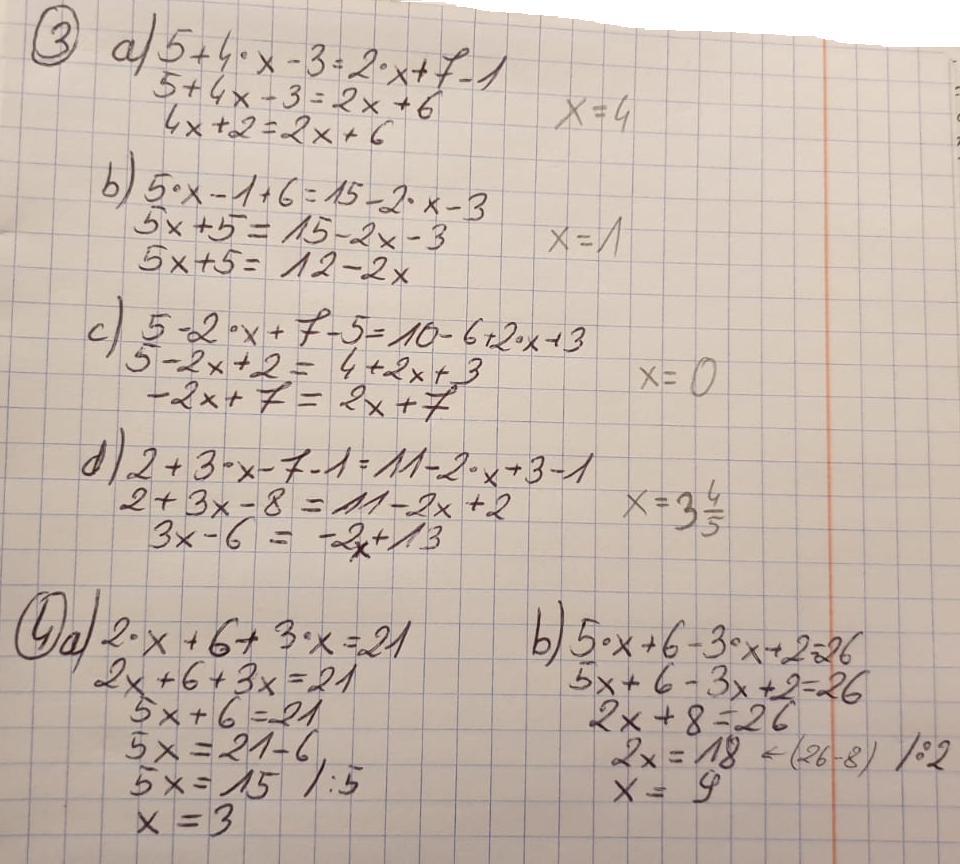 3 a) 5+4·x-3=2·x+7-1
5+4x-3=2x+6
4x+2=2x+6
x=4
b) 5·x-1+6=15-2·x-3
5x+5=15-2x-3
5x+5=12-2x
x=1
c) 5-2·x+7-5=10-6+2·x+3
5-2x+2=4+2x+3
-2x+7=2x+7
x=0
d) 2+3·x-7-1=11-2·x+3-1
2+3x-8=11-2x+2
3x-6=-2x+13
x=3 4/5
4 a) 2·x+6+3·x=21
2x+6+3x=21
5x+6=21
5x=21-6
5x=15 /:5
x=3
b) 5·x+6-3·x+2=26
5x+6-3x+2=26
2x+8=26
2x=18 ←(26-8) /:2
x=9